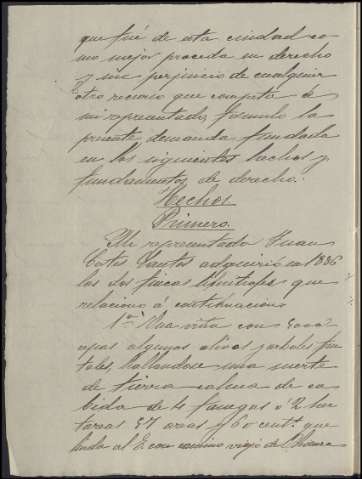 que fué de esta ciudad co-
mo mejor proceda en derecho
y sin perjuicio de cualquier
otro recurso que competa á
mi representado, formulo la
presente demanda fundada
en los siguientes hechos y
fundamentos de derecho.
Hechos
Primero.
Mi representado Juan
Cortes Santos adquirió en 1886
las dos fincas limitrofes que
relaciono á continuacion
1ª Una viña con
cepas algunos olivos y arboles fru-
tales, hallandose una suerte
de tierra calma de ca-
bida de 4 fanegas ó 2 hec-
tareas 57 areas y 60 cent.s que
linda al E. con camino viejo de